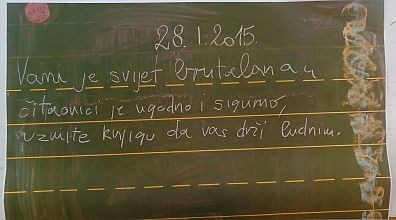 28.1.2015.
Vani je svijet brutalan a u
čitaonici je ugodno i sigurno,
uzmite knjigu da vas drži budnim.